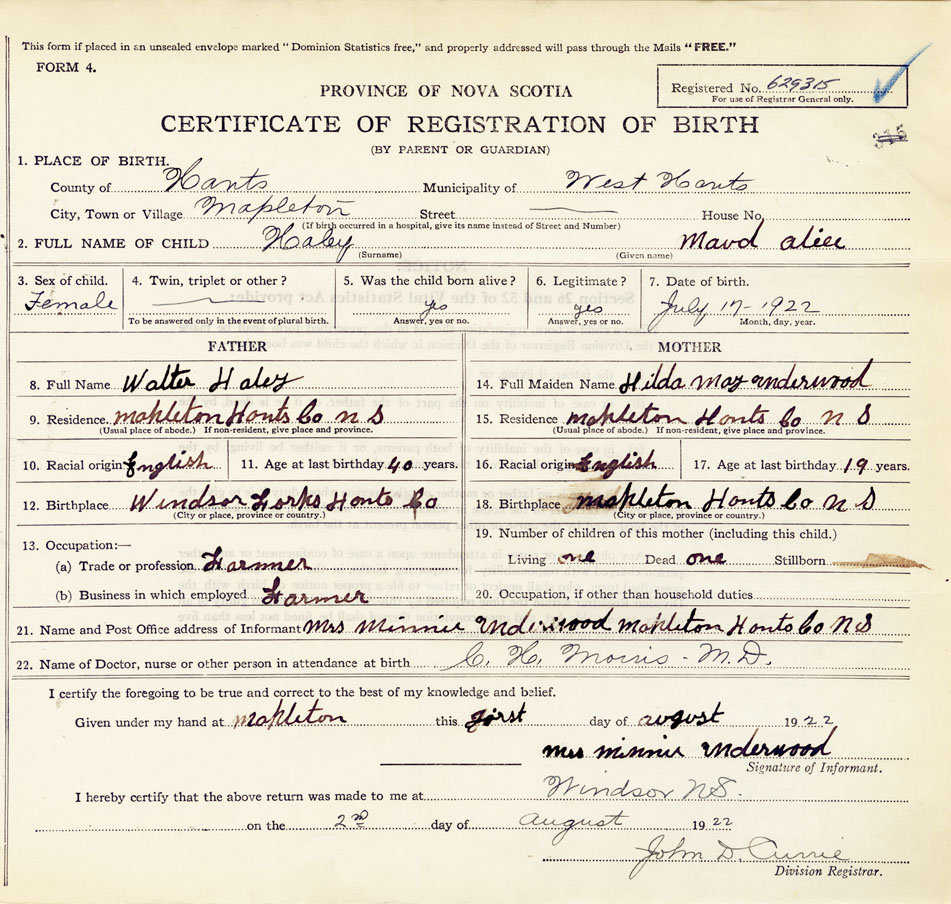 This form if placed in an unsealed envelope marked "Dominion Statistics free," and properly addressed will pass through the Mails "FREE."
FORM 4.
Registered No. 629315
For use of Registrar General only.
PROVINCE OF NOVA SCOTIA
CERTIFICATE OF REGISTRATION OF BIRTH
(BY PARENT OR GUARDIAN)
315
1. PLACE OF BIRTH.
County of Hants Municipality of West Hants
City, Town or Village Mapleton Street House No.
(If birth occurred in a hospital, give its name instead of Street and Number)
2. FULL NAME OF CHILD Haley Maud alice
(Surname) (Given name)
3. Sex of child. 4. Twin, triplet or other? 5. Was the child born alive? 6. Legitimate? 7. Date of birth.
Female yes yes July 17-1922
To be answered only in the event of plural birth. Answer, yes or no. Answer, yes or no. Month, day, year.
FATHER MOTHER
8. Full Name Walter Haley 14. Full Maiden Name Hilda May Underwood
9. Residence Mapleton Hants Co N S 15. Residence Mapleton Hants Co N S
(Usual place of abode.) If non-resident, give place and province. (Usual place of abode.) If non-resident, give place and province.
10. Racial origin English 11. Age at last birthday 40 years. 16. Racial origin English 17. Age at last birthday 19 years.
12. Birthplace Windsor Forks Hants Co 18. Birthplace Mapleton Hants Co N S
(City or place, province or country.) (City or place, province or country.)
13. Occupation:— 19. Number of children of this mother (including this child.)
(a) Trade or profession Farmer Living one Dead one Stillborn
(b) Business in which employed Farmer 20. Occupation, if other than household duties
21. Name and Post Office address of Informant Mrs Minnie Underwood Mapleton Hants Co N S
22. Name of Doctor, nurse or other person in attendance at birth C. H. Morris - M.D.
I certify the foregoing to be true and correct to the best of my knowledge and belief.
Given under my hand at Mapleton this first day of august 1922
mrs minnie Underwood
Signature of Informant.
I hereby certify that the above return was made to me at Windsor N.S.
on the 2nd day of August 1922
John D. Currie
Division Registrar.